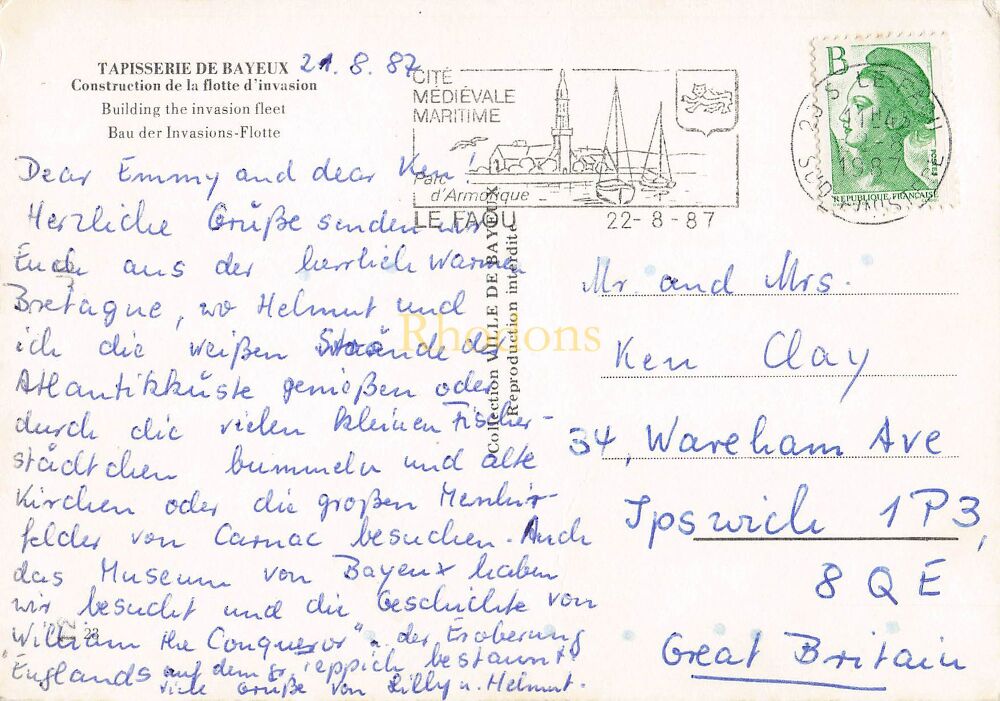 TAPISSERIE DE BAYEUX
Construction de la flotte d'invasion
Building the invasion fleet
Bau der Invasions-Flotte
21.8.87
CITÉ
MÉDIÉVALE
MARITIME
Parc
d'Armorique
LE FAOU
22-8-87
B
1987
REPUBLIQUE FRANÇAISE
Dear Emmy and dear Ken!
Herzliche Grüße senden wir
Euch aus der herrlich warmen
Bretagne, wo Helmut und
ich die weißen Strände der
Atlantikküste genießen oder
durch die vielen kleinen Fischer-
städtchen bummeln und alte
Kirchen oder die großen Menhir-
felder von Carnac besuchen. Auch
das Museum von Bayeux haben
wir besucht und die Geschichte von
"William the Conqueror" u. der Eroberung
Englands auf dem gr. Teppich bestaunt.
Viele Grüße von Lilly u. Helmut.
23
Collection VILLE DE BAYEUX
Reproduction interdite
Rhodons
Mr. and Mrs.
Ken Clay
34, Wareham Ave
Ipswich 1P3,
8QE
Great Britain